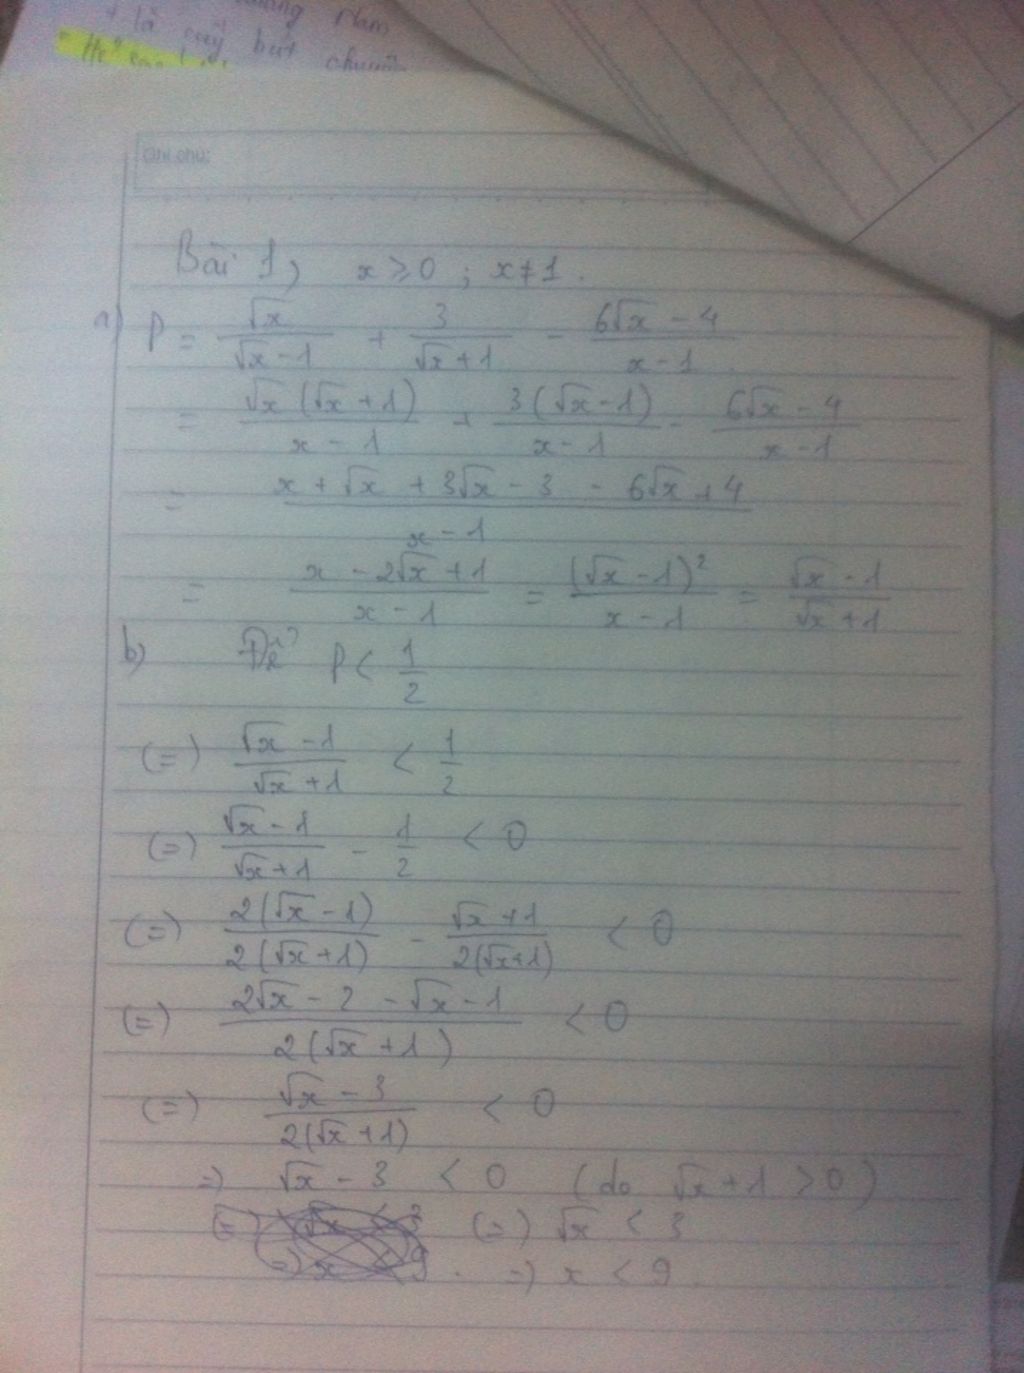 là
bút
Ghi chú:
Bài 1, x ≥ 0 ; x ≠ 1.
a) P = √x / (√x - 1) + 3 / (√x + 1) - (6√x - 4) / (x - 1)
= √x (√x + 1) / (x - 1) + 3(√x - 1) / (x - 1) - (6√x - 4) / (x - 1)
= (x + √x + 3√x - 3 - 6√x + 4) / (x - 1)
= (x - 2√x + 1) / (x - 1) = (√x - 1)² / (x - 1) = (√x - 1) / (√x + 1)
b) Để P < 1/2
(=) (√x - 1) / (√x + 1) < 1/2
(=) (√x - 1) / (√x + 1) - 1/2 < 0
(=) 2(√x - 1) / 2(√x + 1) - (√x + 1) / 2(√x + 1) < 0
(=) (2√x - 2 - √x - 1) / 2(√x + 1) < 0
(=) (√x - 3) / 2(√x + 1) < 0
=) √x - 3 < 0 (do √x + 1 > 0)
(=) √x < 3
=) x < 9.